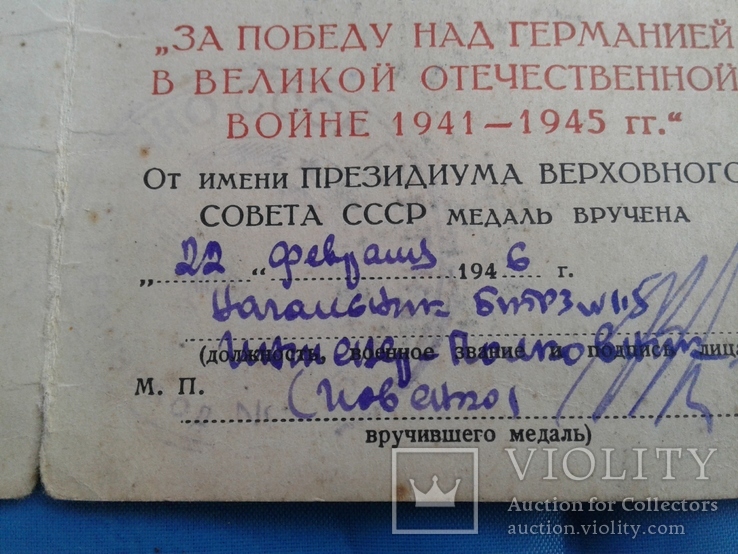 „ЗА ПОБЕДУ НАД ГЕРМАНИЕЙ
В ВЕЛИКОЙ ОТЕЧЕСТВЕННОЙ
ВОЙНЕ 1941—1945 гг.“
От имени ПРЕЗИДИУМА ВЕРХОВНОГО
СОВЕТА СССР МЕДАЛЬ ВРУЧЕНА
„22“ февраля 1946 г.
Начальник
(должность, военное звание и подпись лица
Инженер-Полковник
М. П.
вручившего медаль)
VIOLITY
Auction for Collectors
auction.violity.com